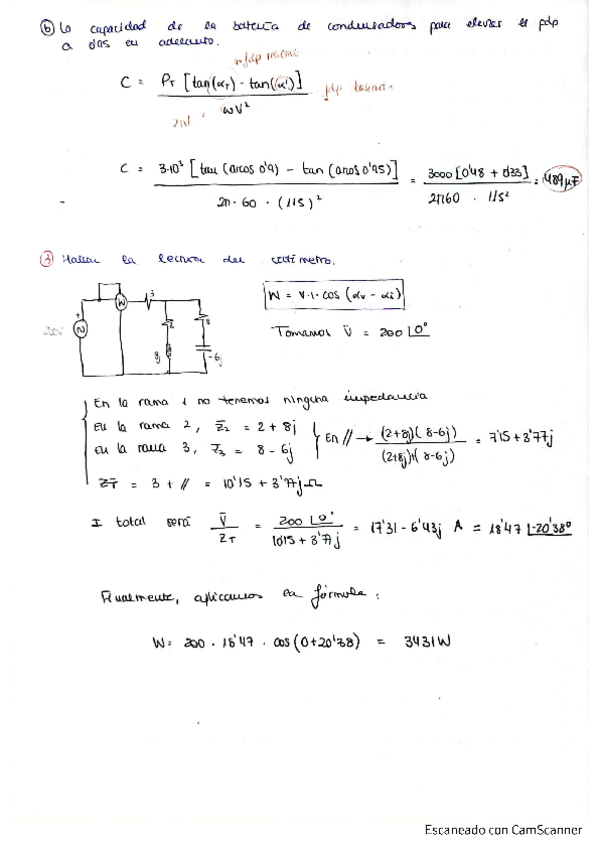 b) La capacidad de la batería de condensadores para elevar el fdp
a 0'95 en adelanto.
C = PT [tan(αT) - tan(α')] / wV²
C = 3·10³ [tan (arcos 0'9) - tan (arcos 0'95)] / 2π·60·(115)² = 3000 [0'48 + 0'33] / 2π60 · 115² = 489 μF
3) Hallar la lectura del vatímetro.
W = V·I·cos (αv - αi)
Tomamos V̄ = 200 ∟0°
200V
W
3
2
8
8j
-6j
En la rama 1 no tenemos ninguna impedancia
En la rama 2, Z̄2 = 2 + 8j
En la rama 3, Z̄3 = 8 - 6j
En // → (2+8j)(8-6j) / (2+8j)+(8-6j) = 7'15 + 3'77j
Z̄T = 3 + // = 10'15 + 3'77j Ω
I total será V̄ / ZT = 200 ∟0° / 10'15 + 3'77j = 17'31 - 6'43j A = 18'47 ∟-20'38°
Finalmente, aplicamos la fórmula:
W = 200 · 18'47 · cos (0+20'38) = 3431W
Escaneado con CamScanner